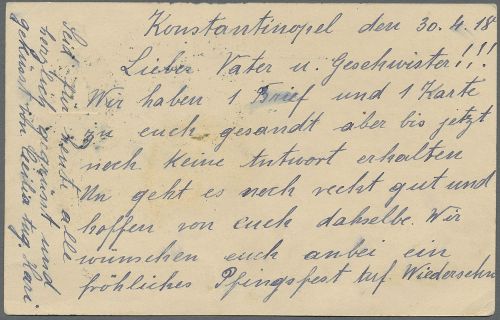 Konstantinopel den 30.4.18
Lieber Vater u. Geschwister!!!
Wir haben 1 Brief und 1 Karte
zu euch gesandt aber bis jetzt
noch keine Antwort erhalten
Un geht es noch recht gut und
hoffen von euch dahselbe. Wir
wünschen euch anbei ein
fröhliches Pfingsfest auf Wiedersehn
Seid für heute alle
herzlich gegrüsst und
geküsst von Cecilia